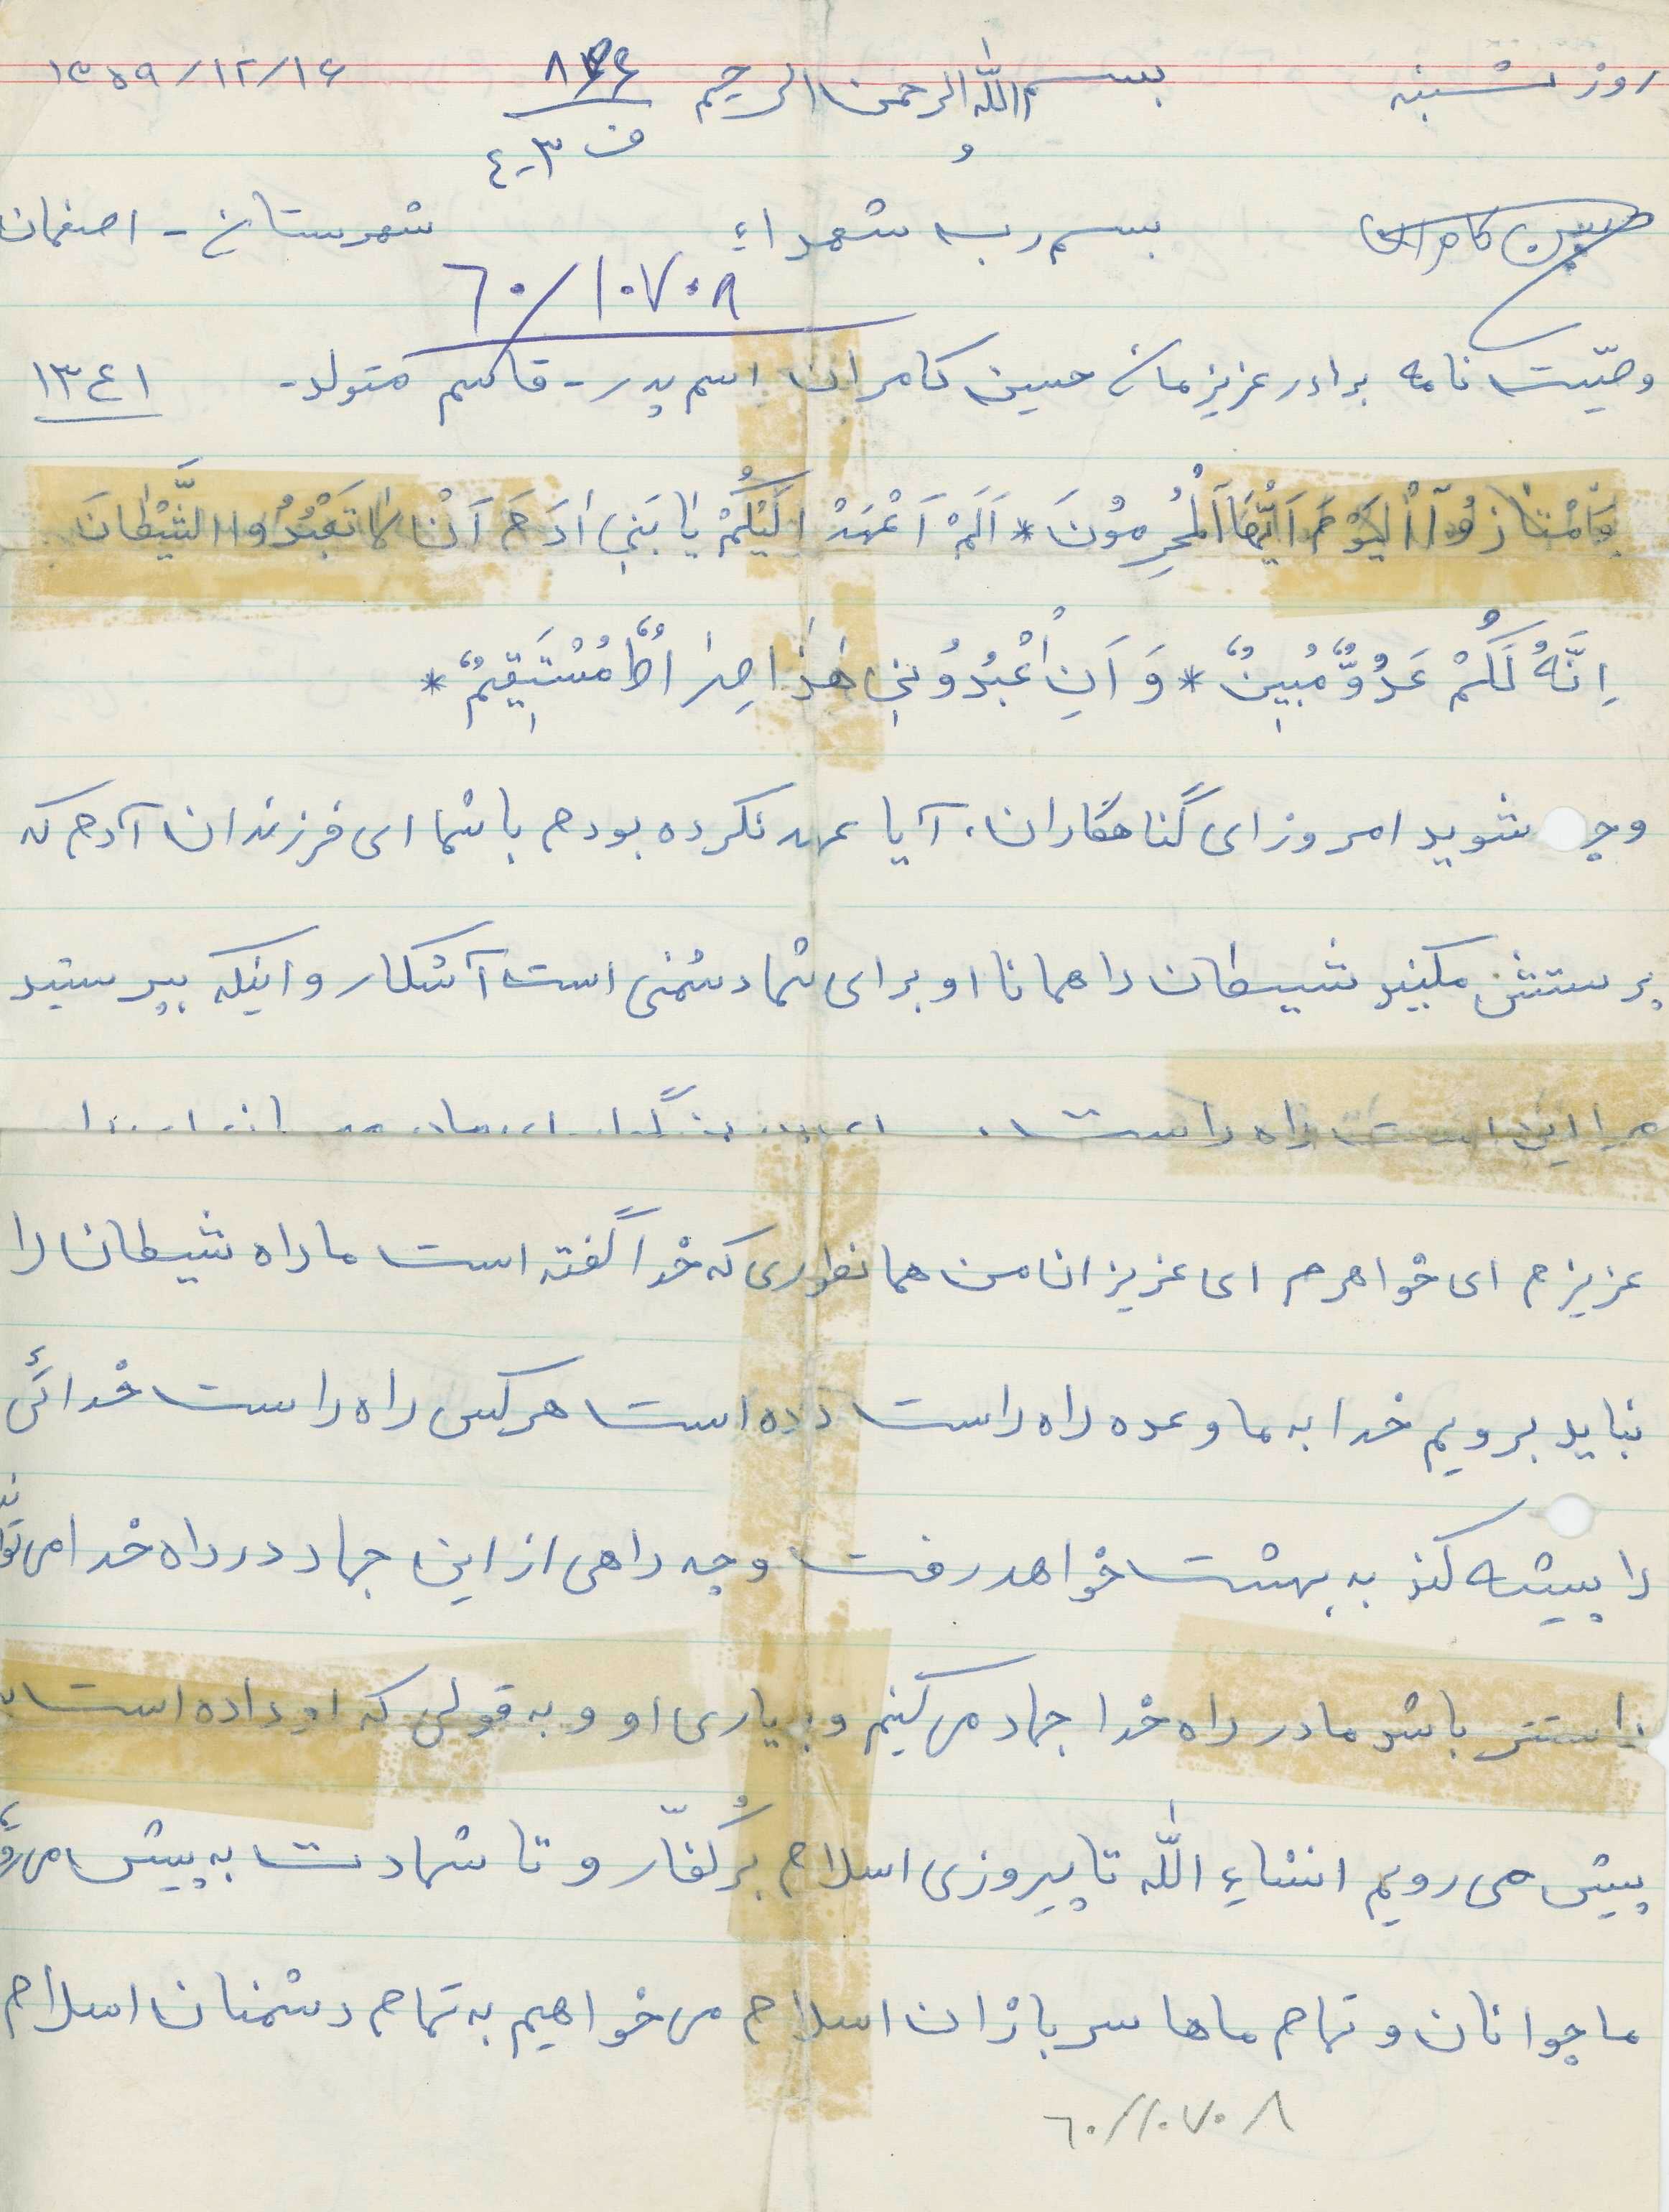 روز شنبه بسم الله الرحمن الرحیم ۱۳۵۹/۱۲/۱۶
و ف ۳-٤
حسین کامران بسم رب شهداء شهرستان - اصفهان
٦٠/١٠٧٠٨
وصیّت نامه برادر عزیزمان حسین کامران اسم پدر - قاسم متولد - ۱۳٤۱
وَامْتازُوا الْیَوْمَ اَیُّهَا الْمُجْرِمُونَ * اَلَمْ اَعْهَدْ اِلَیْکُمْ یٰا بَنی اٰدَمَ اَنْ لاٰ تَعْبُدُوا الشَّیْطٰانَ
اِنَّهُ لَکُمْ عَدُوٌّ مُبینٌ * وَ اَنِ اعْبُدُونی هٰذٰا صِرٰاطٌ مُسْتَقیمٌ *
شوید امروز ای گناهکاران، آیا عهد نکرده بودم با شما ای فرزندان آدم که
پرستش مکنید شیطان را همانا او برای شما دشمنی است آشکار و اینکه بپرستید
مرا این است راه راست.
عزیزم ای خواهرم ای عزیزان من همانطوری که خدا گفته است ما راه شیطان را
نباید برویم خدا به ما وعده راه راست داده است هر کس راه راست خدائی
را پیشه کند به بهشت خواهد رفت و چه راهی از این جهاد در راه خدا می تواند
راستتر باشد ما در راه خدا جهاد می کنیم و به یاری او و به قولی که او داده است به
پیش می رویم انشاءِ اللّٰه تا پیروزی اسلام بر کُفّار و تا شهادت به پیش می رویم
ما جوانان و تمام ماها سربازان اسلام می خواهیم به تمام دشمنان اسلام
٦٠/١٠٧٠٨